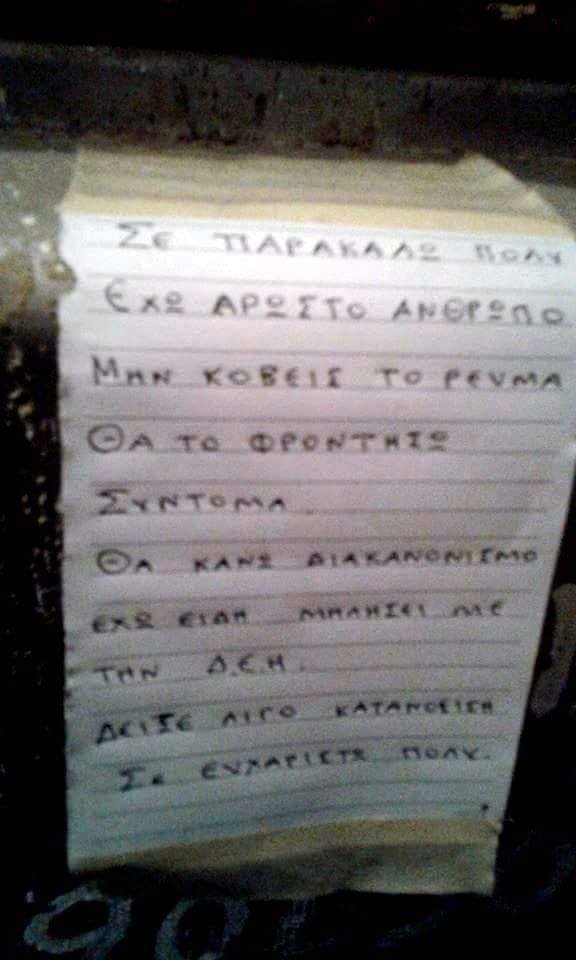 Σε ΠΑΡΑΚΑΛΩ ΠΟΛΥ
ΕΧΩ ΑΡΩΣΤΟ ΑΝΘΡΩΠΟ
ΜΗΝ ΚΟΒΕΙΣ ΤΟ ΡΕΥΜΑ
ΘΑ ΤΟ ΦΡΟΝΤΗΣΩ
ΣΥΝΤΟΜΑ.
ΘΑ ΚΑΝΩ ΔΙΑΚΑΝΟΝΙΣΜΟ
ΕΧΩ ΕΙΔΗ ΜΗΛΗΣΕΙ ΜΕ
ΤΗΝ Δ.Ε.Η.
ΔΕΙΞΕ ΛΙΓΟ ΚΑΤΑΝΟΕΙΣΗ
Σε ΕΥΧΑΡΙΣΤΩ ΠΟΛΥ.